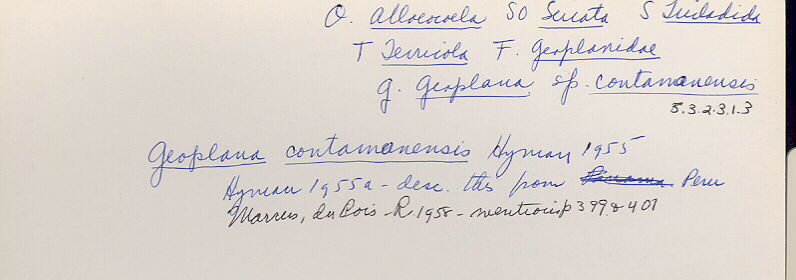 O. Alloeocoela SO Seriata S Tricladida
T Terricola F. Geoplanidae
g. Geoplana sp. contamanensis
5.3.2.3.1.3
Geoplana contamanensis Hyman 1955
Hyman 1955a - desc. this from Panama Peru
Marcus, du Bois-R 1958 - mentions p 399 & 401